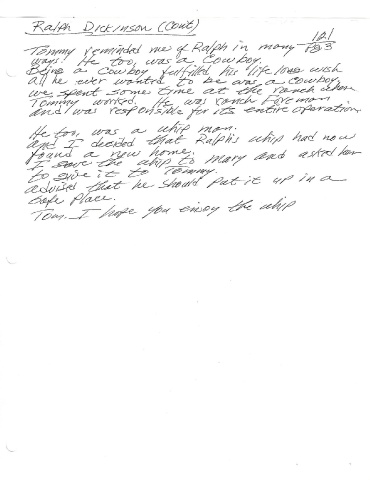 Ralph Dickinson (Cont)
121
Pg 3
Tommy reminded me of Ralph in many
ways! He too, was a Cowboy.
Being a Cowboy fulfilled his life wish
all he ever wanted to be was a Cowboy,
we spent some time at the ranch when
Tommy worked. He was ranch Foreman
and was responsible for its entire operation
He too, was a whip man.
and I decided that Ralph's whip had now
found a new home.
I gave the whip to Mary and asked her
to give it to Tommy.
advised that he should put it up in a
safe place.
Tom. I hope you enjoy the whip